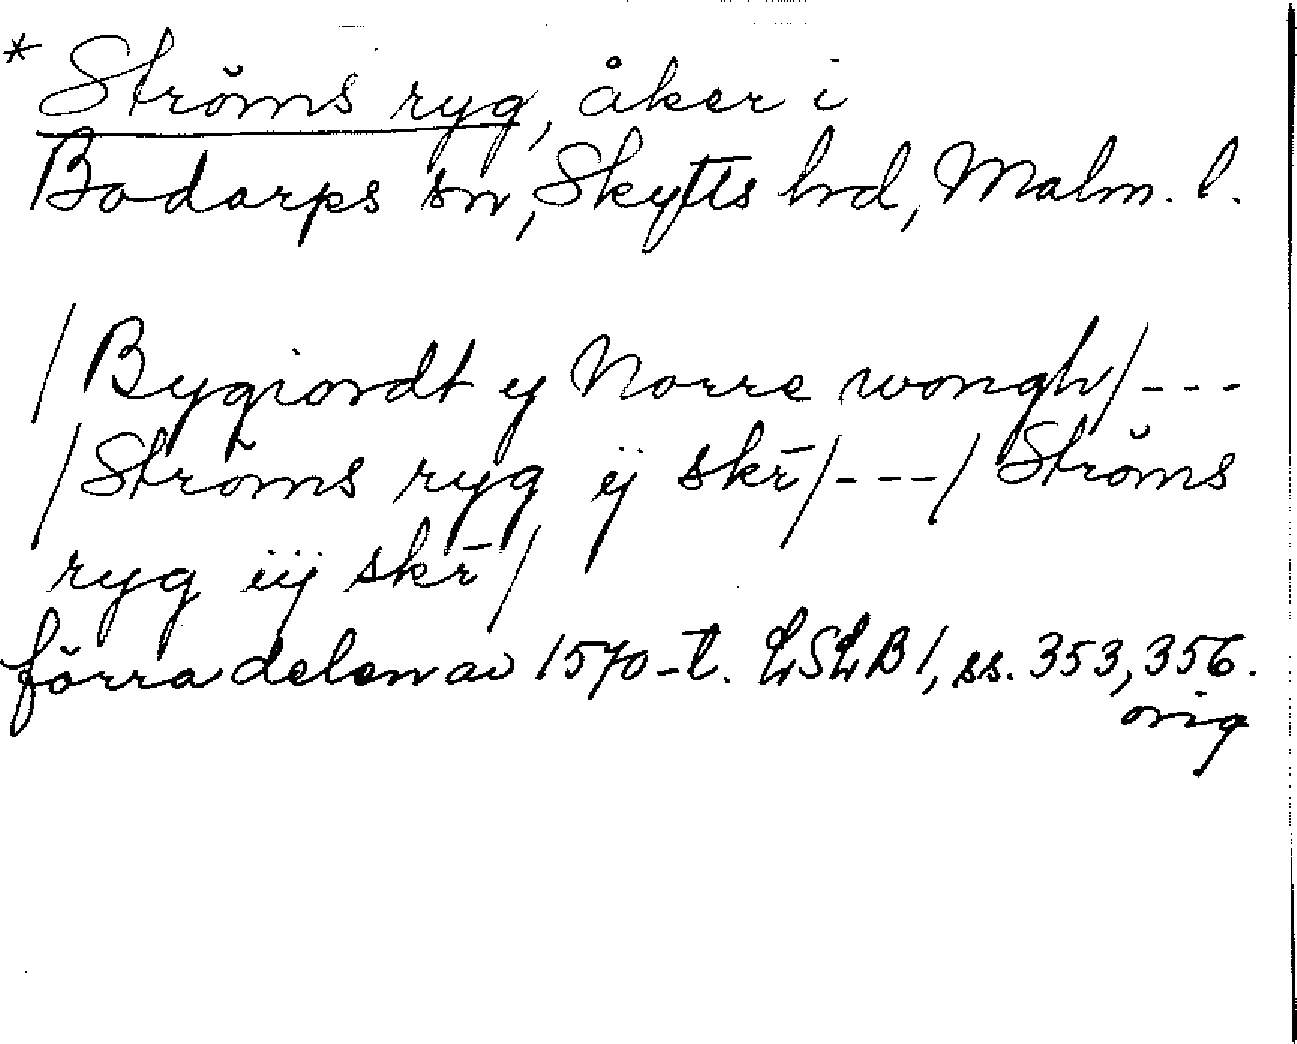 * Strŏms ryg, åker i
Bodarps sn, Skytts hd, Malm. l.
/Bygiordt y Norre wongh/---
/Strŏms ryg ij skr̄/---/Strŏms
ryg iij skr̄/
förra delen av 1570-t. LSLB 1, ss. 353, 356.
orig